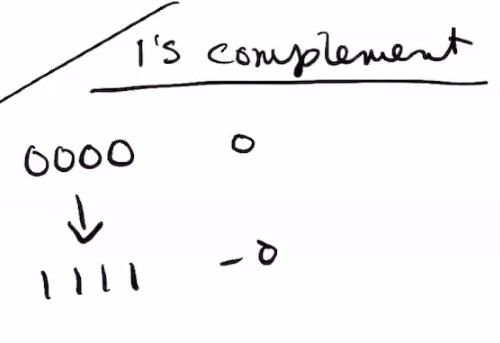 1's complement
0000 0
↓
1111 -0